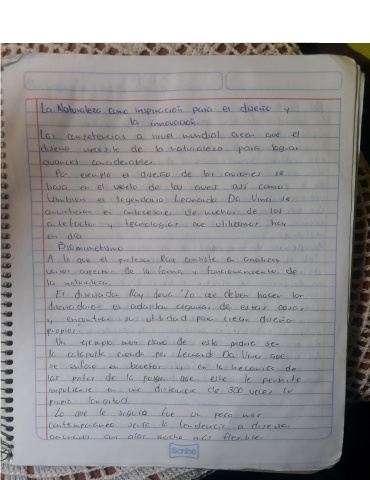 La Naturaleza como inspiración para el diseño y
la innovación
Las competencias a nivel mundial creen que el
diseño de la naturaleza para lograr
avances considerables.
Por ejemplo el diseño de los aviones se
basa en el vuelo de las aves así como
tambien el legendario Leonardo Da Vinci se
en de muchos de los
y tecnologias que utilizamos hoy
en día.
Biomimetismo
A lo que el profesor consiste en analizar
varios aspectos de la forma y funcionamiento de
la naturaleza.
El diseñador Ray dava "Lo que deben hacer los
diseñadores es adoptar algunas de estas cosas
y encontrar su utilidad para crear diseños
propios.
Un ejemplo mas claro de esto podria ser
la catapulta creada por Leonardo Da Vinci que
se enfoco en bocetos y en la mecanica de
las patas de la pulga que este le permite
impulsarse en una distancia de 300 veces su
propia longitud
Lo que le siguio fue un poco mas
contemporaneo sería la tendencia a diseñar
con alas mucho más flexible
Scribe